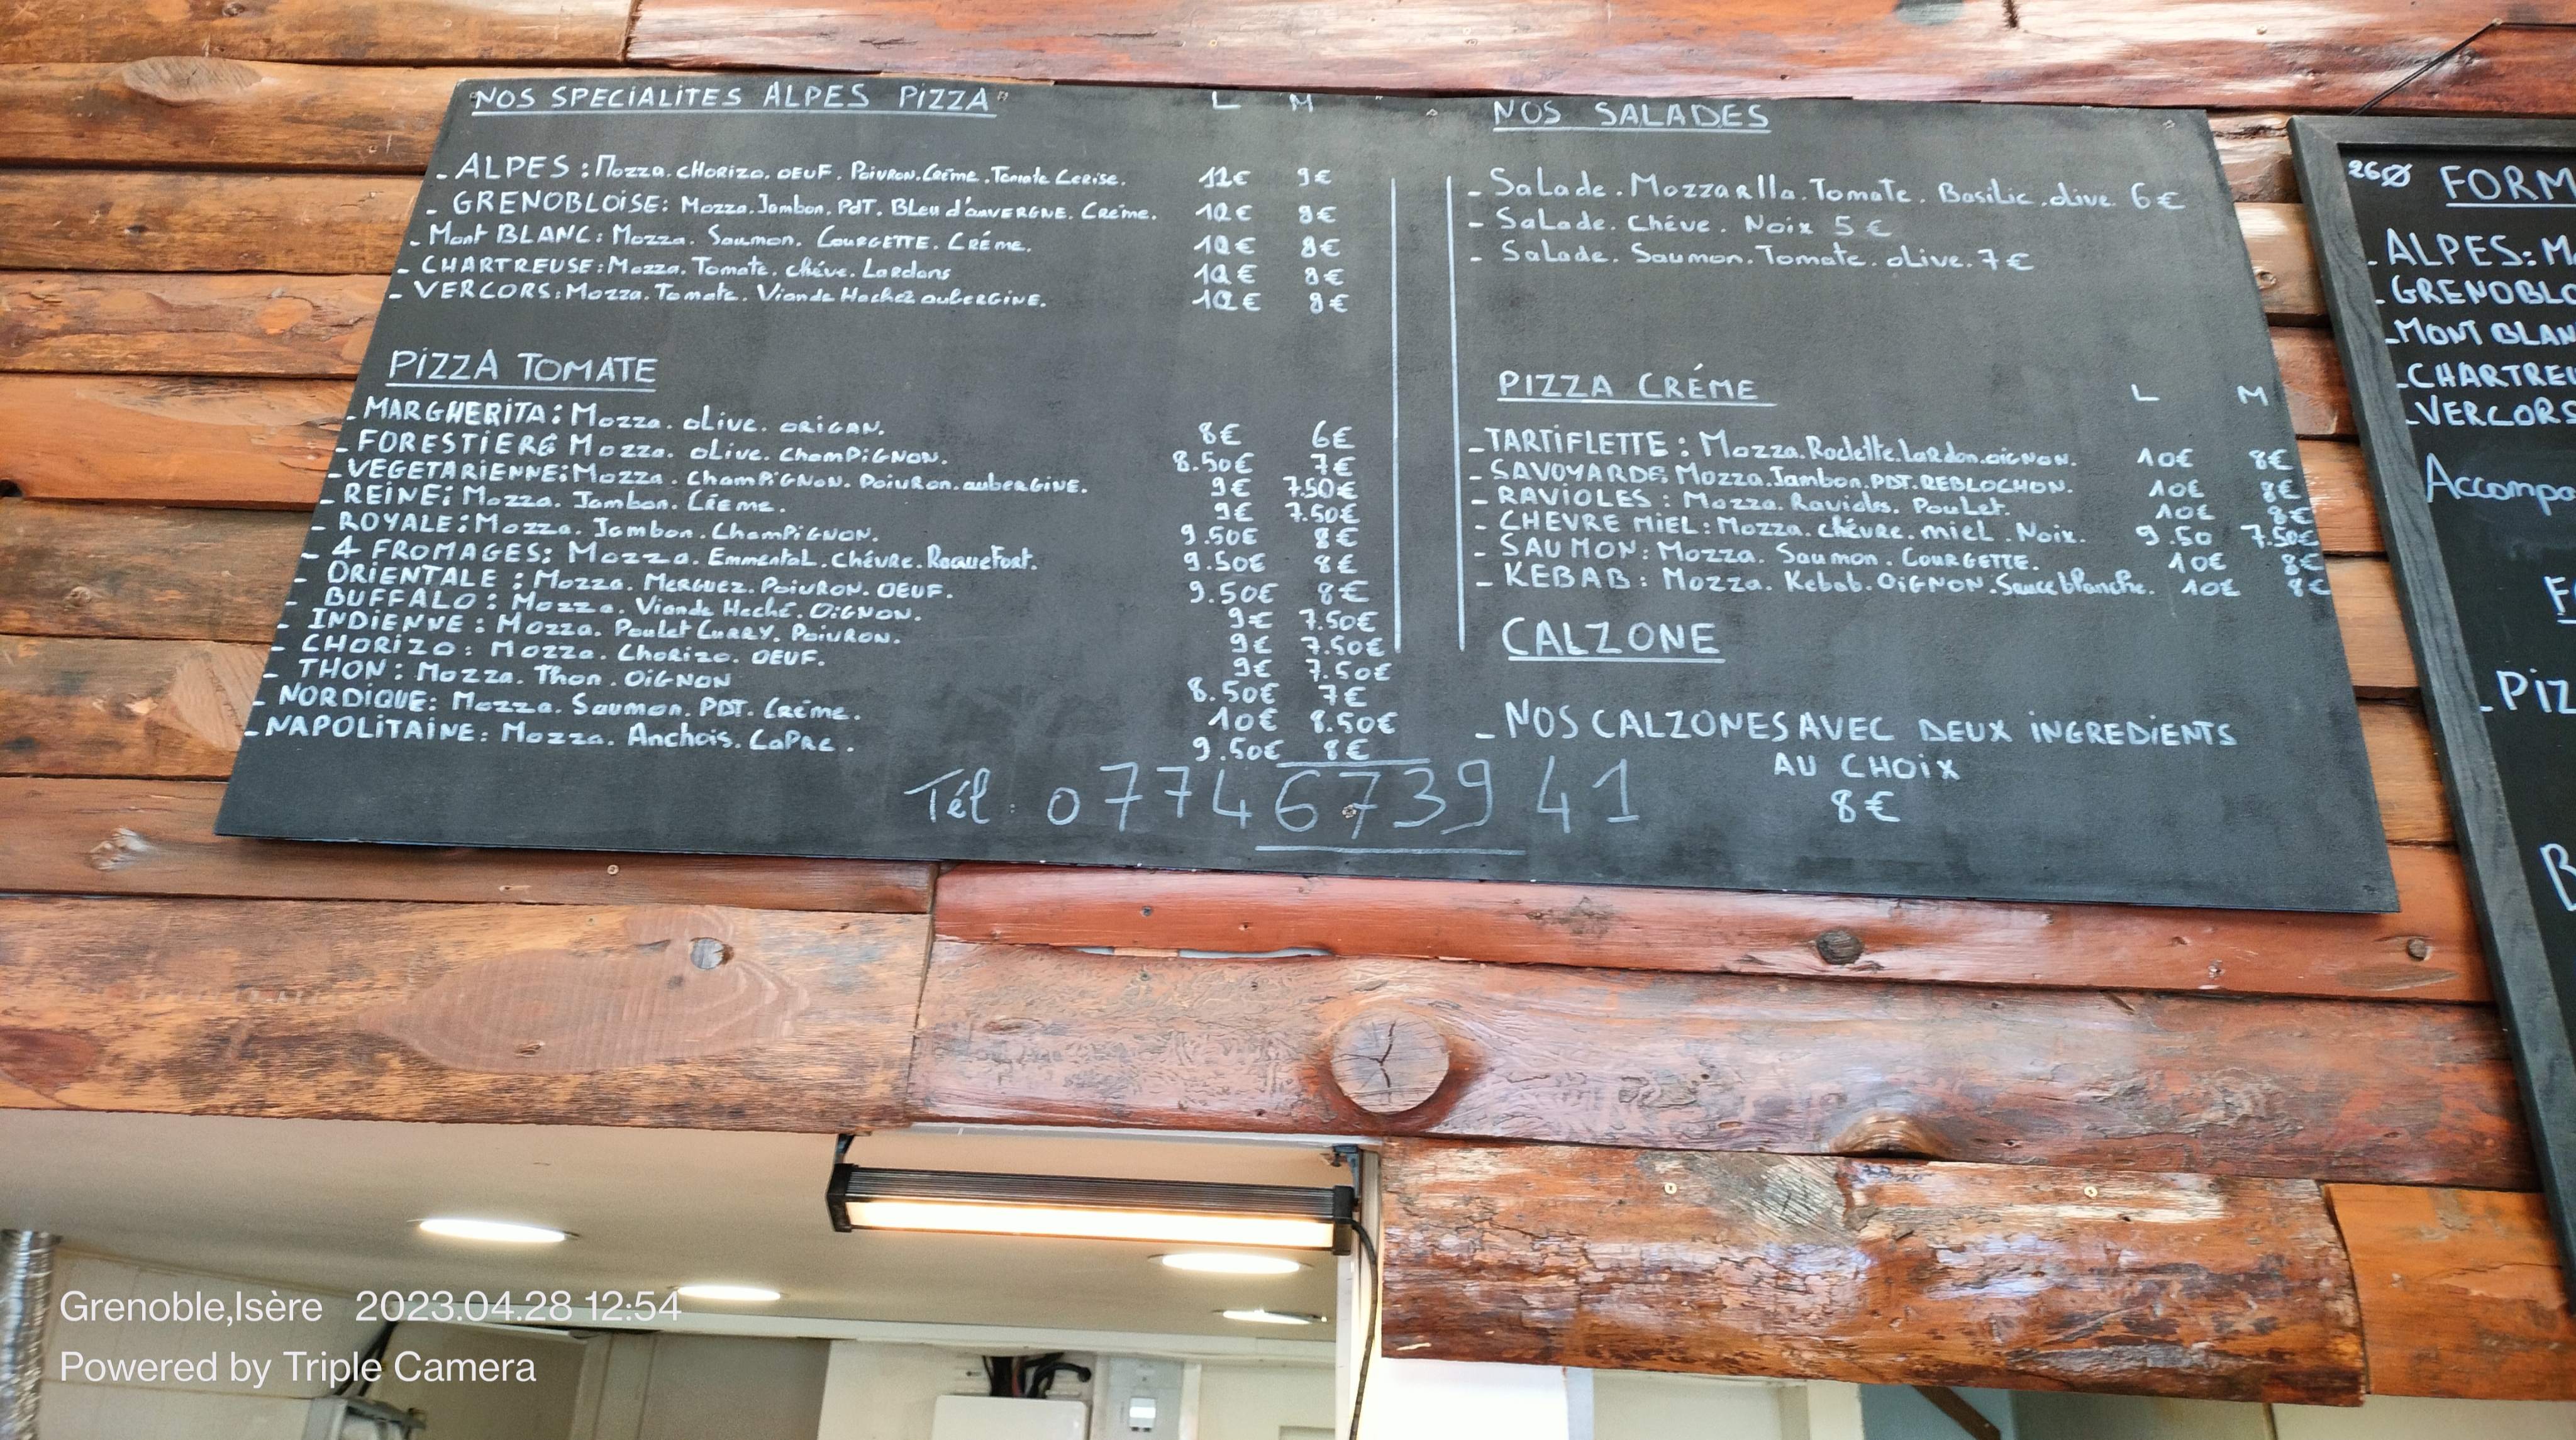 NOS SPECIALITES ALPES PIZZA L M
- ALPES : Mozza. CHORIZO. OEUF. POIVRON. Crème. Tomate Cerise. 12€ 9€
- GRENOBLOISE: Mozza. Jambon. PdT. BLeu d'auVERGNE. Crème. 12€ 9€
- Mont BLANC: Mozza. Saumon. COURGETTE. CRÉme. 12€ 9€
- CHARTREUSE: Mozza. Tomate. chéve. Lardons 12€ 9€
- VERCORS: Mozza. Tomate. Viande Hachez aubERGINE. 12€ 9€
PIZZA TOMATE
- MARGHERITA: Mozza. oLive. ORIGAN. 8€ 6€
- FORESTIERE Mozza. oLive. ChamPiGNON. 8.50€ 7€
- VEGETARIENNE: Mozza. ChamPiGNON. PoivRon. aubERGINE. 9€ 7.50€
- REINE: Mozza. Jambon. Créme. 9€ 7.50€
- ROYALE: Mozza. Jambon. ChamPiGNON. 9.50€ 8€
- 4 FROMAGES: Mozza. EmmentaL. Chévre. RoqueFort. 9.50€ 8€
- ORIENTALE : Mozza. MERGUEZ. POIVRON. OEUF. 9.50€ 8€
- BUFFALO: Mozza. Viande Haché. OiGNON. 9€ 7.50€
- INDIENNE : Mozza. Poulet CURRY. POIVRON. 9€ 7.50€
- CHORIZO: Mozza. Chorizo. OEUF. 9€ 7.50€
- THON: Mozza. Thon. OiGNON 8.50€ 7€
- NORDIQUE: Mozza. Saumon. PDT. Créme. 10€ 8.50€
- NAPOLITAINE: Mozza. Anchois. CaPRE. 9.50€ 8€
Tél : 0774673941
NOS SALADES
- SaLade. Mozzarlla. Tomate. Basilic. oLive. 6€
- SaLade. Chéve. Noix 5€
- Salade. Saumon. Tomate. oLive. 7€
PIZZA CRÉME L M
- TARTIFLETTE : Mozza. Raclette. Lardon. oiGNON. 10€ 8€
- SAVOYARDE Mozza. Jambon. PDT. REBLOCHON. 10€ 8€
- RAVIOLES : Mozza. Ravioles. PouLet. 10€ 8€
- CHEVRE MIEL: Mozza. chévre. miel. Noix. 9.50 7.50€
- SAUMON: Mozza. Saumon. COURGETTE. 10€ 8€
- KEBAB: Mozza. Kebab. OiGNON. Sauce blanche. 10€ 8€
CALZONE
- NOS CALZONES AVEC DEUX INGREDIENTS
AU CHOIX
8€
FORM
- ALPES: M
- GRENOBLO
- MONT BLAN
- CHARTREU
- VERCORS
Accompa
- PIZ
Grenoble,Isère 2023.04.28 12:54
Powered by Triple Camera